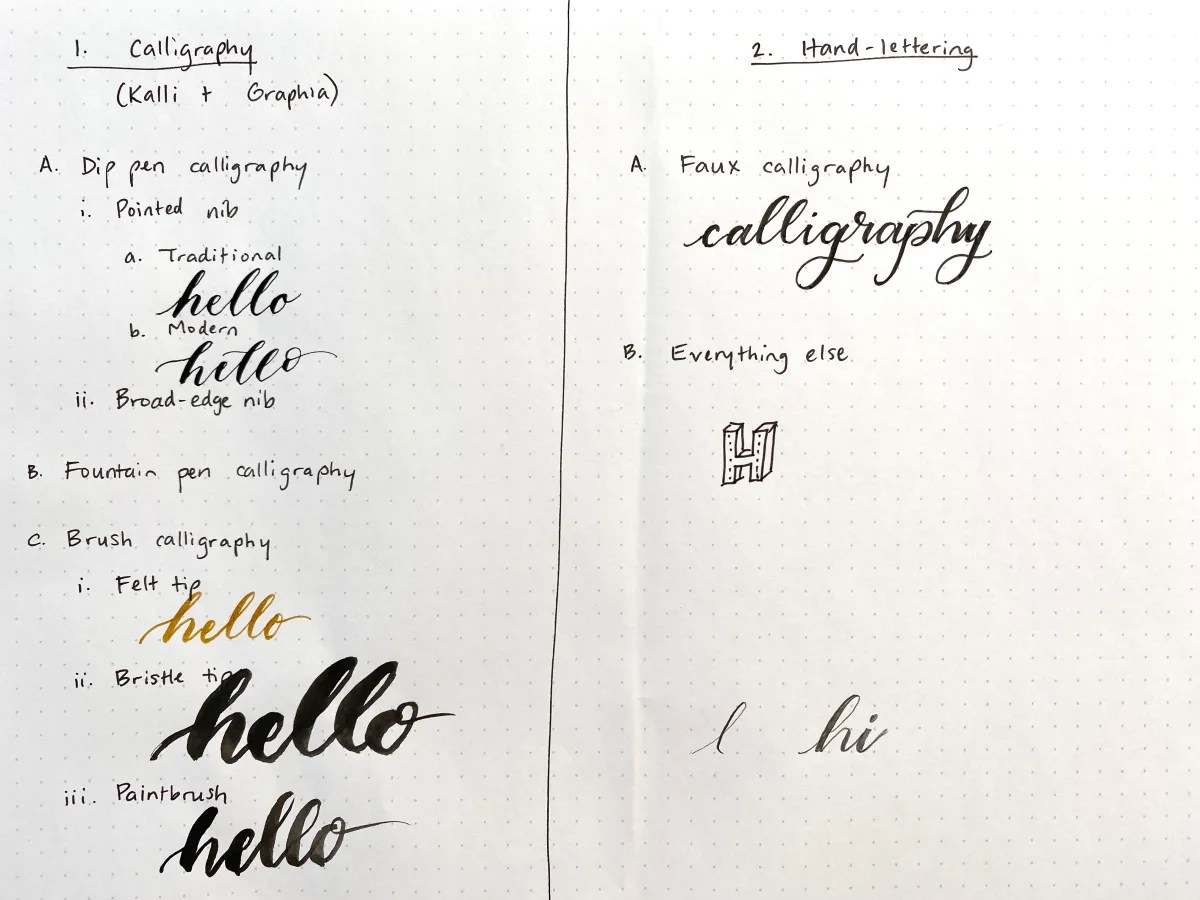 1. Calligraphy
(Kalli + Graphia)
A. Dip pen calligraphy
i. Pointed nib
a. Traditional
hello
b. Modern
hello
ii. Broad-edge nib
B. Fountain pen calligraphy
C. Brush calligraphy
i. Felt tip
hello
ii. Bristle tip
hello
iii. Paintbrush
hello
2. Hand-lettering
A. Faux calligraphy
calligraphy
B. Everything else
H
l hi